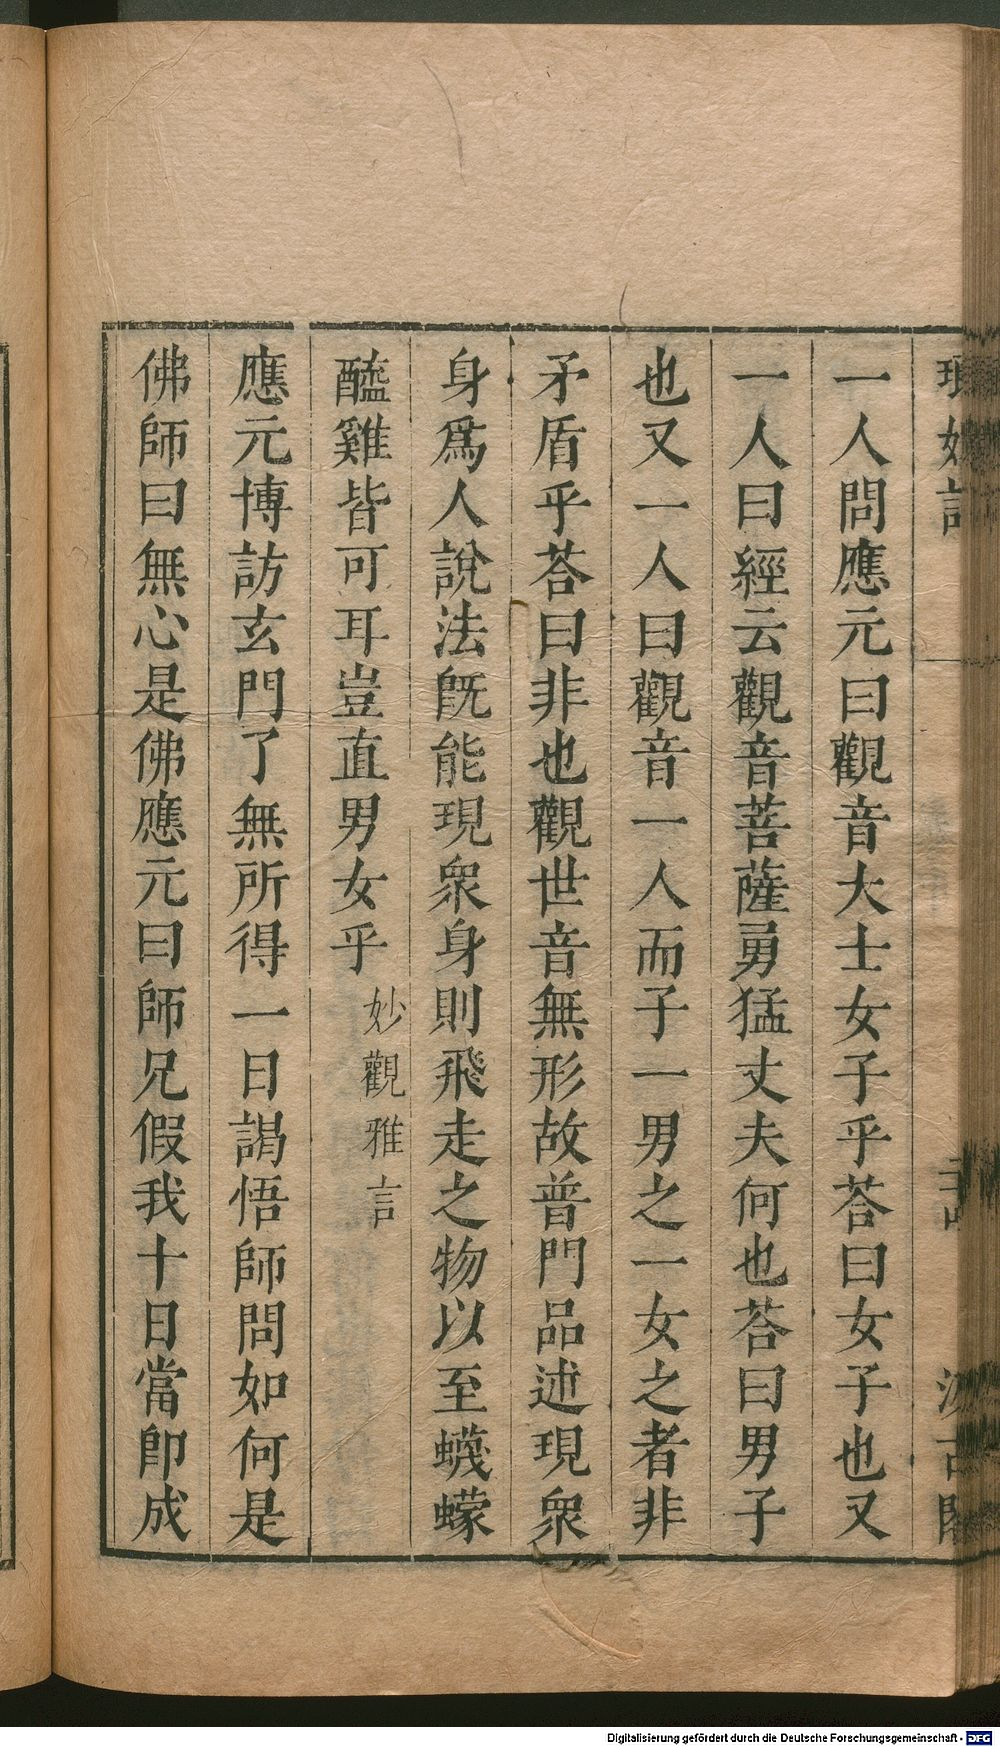 一人問應元曰觀音大士女子乎荅曰女子也又
一人曰經云觀音菩薩勇猛丈夫何也荅曰男子
也又一人曰觀音一人而子一男之一女之者非
矛盾乎荅曰非也觀世音無形故普門品述現衆
身爲人說法旣能現衆身則飛走之物以至蠛蠓
醯雞皆可耳豈直男女乎 妙觀雅言
應元博訪玄門了無所得一日謁悟師問如何是
佛師曰無心是佛應元曰師兄假我十日當卽成
Digitalisierung gefördert durch die Deutsche Forschungsgemeinschaft - DFG